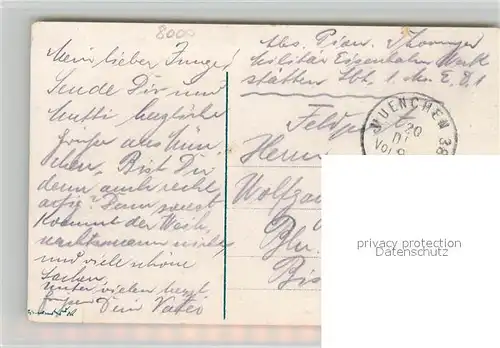 8000
Mein lieber Junge!
Sende Dir und
Mutti herzliche
Grüße aus Mün
chen. Bist Du
denn auch recht
artig? Dann
kommt der Weih
nachtsmann
und viele schöne
Sachen.
Unter vielen herzl
Grüßen Dein Vater
Abs. Pion.
Militär Eisenbahn Werk
stätten Abt. 1. M. E. D. 1
Feldpost
MUENCHEN 38
20
Herrn
Wolfga
Bln.
privacy protection
Datenschutz